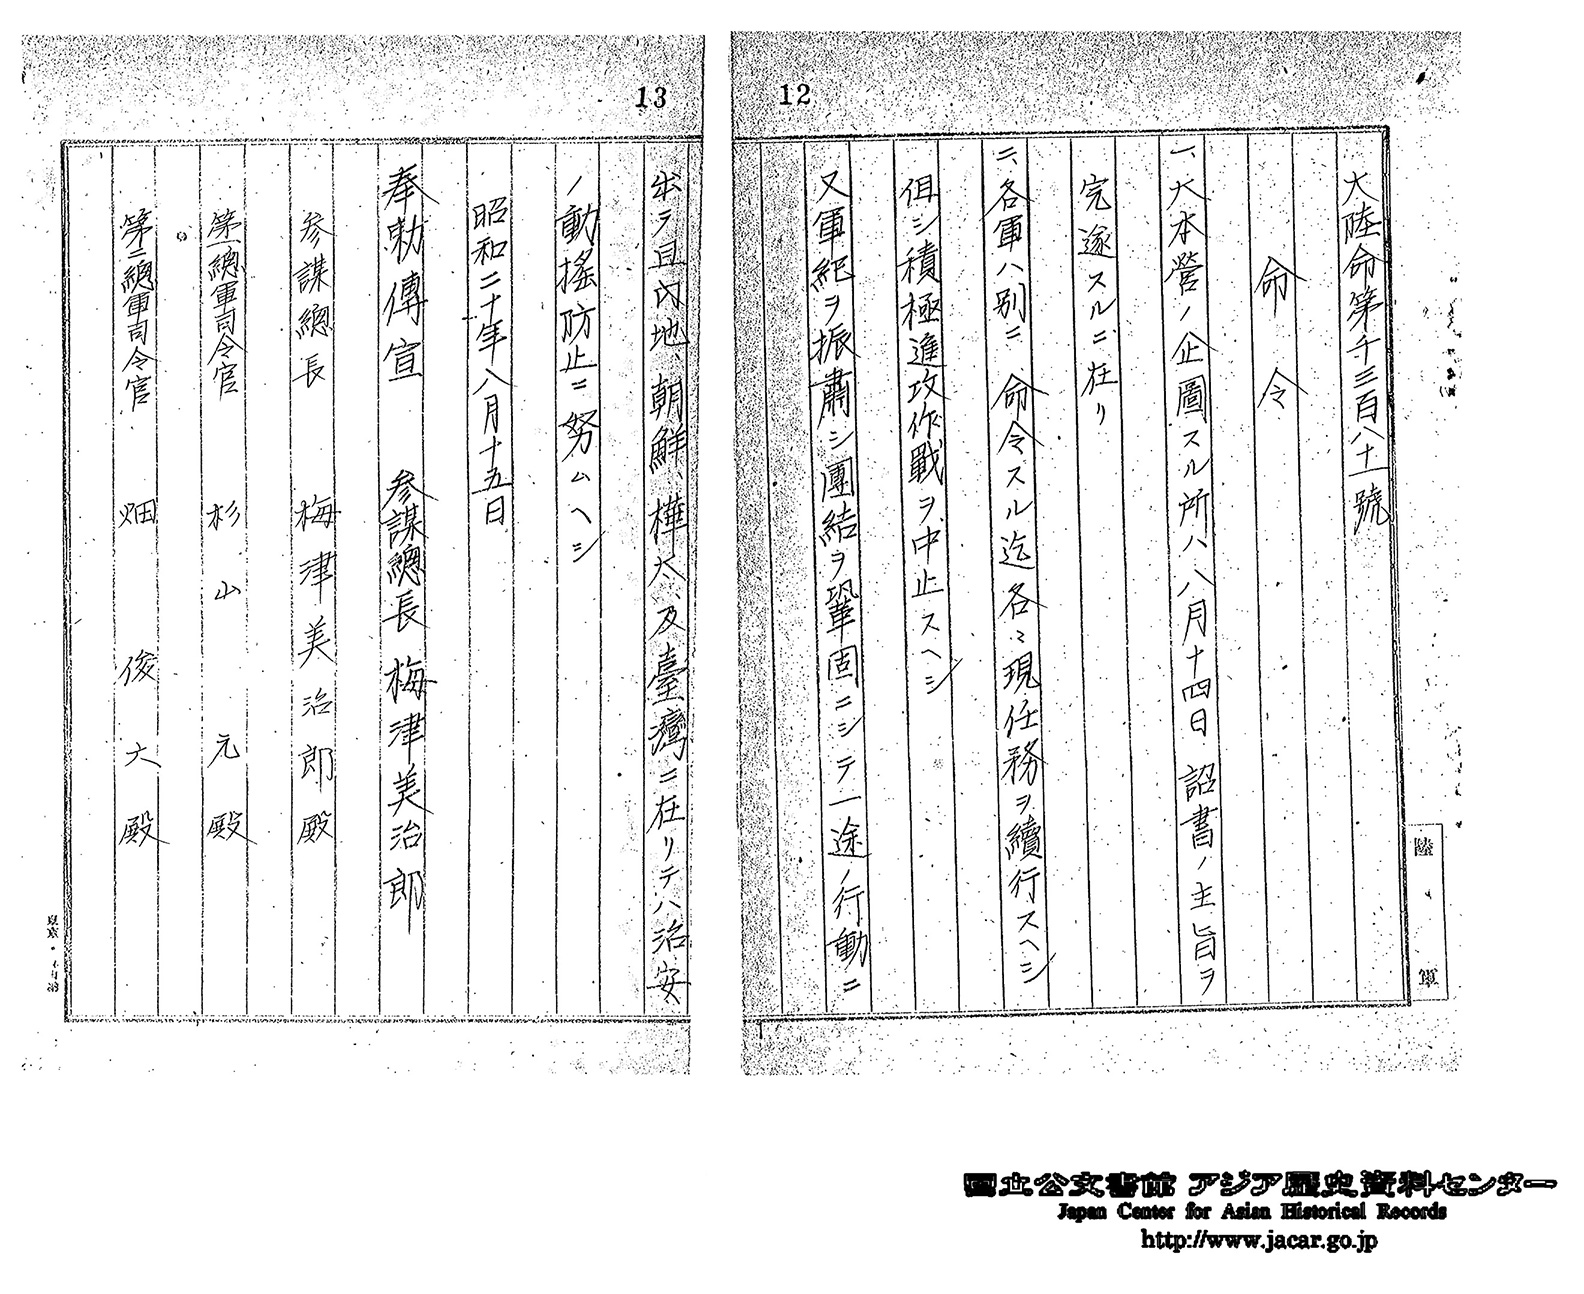 12
大陸命第千三百八十一號
命令
一、大本營ノ企圖スル所ハ八月十四日 詔書ノ主旨ヲ
完遂スルニ在リ
二、各軍ハ別ニ 命令スル迄各〻現任務ヲ續行スヘシ
但シ積極進攻作戰ヲ中止スヘシ
又軍紀ヲ振肅シ團結ヲ鞏固ニシテ一途ノ行動ニ
陸軍
13
出ヲ且內地、朝鮮、樺太、及臺灣ニ在リテハ治安
ノ動搖防止ニ努ムヘシ
昭和二十年八月十五日
奉勅傳宣 参謀總長 梅津美治郎
参謀總長 梅津美治郎殿
第一總軍司令官 杉山元殿
第二總軍司令官 畑俊六殿
国立公文書館 アジア歴史資料センター
Japan Center for Asian Historical Records
http://www.jacar.go.jp